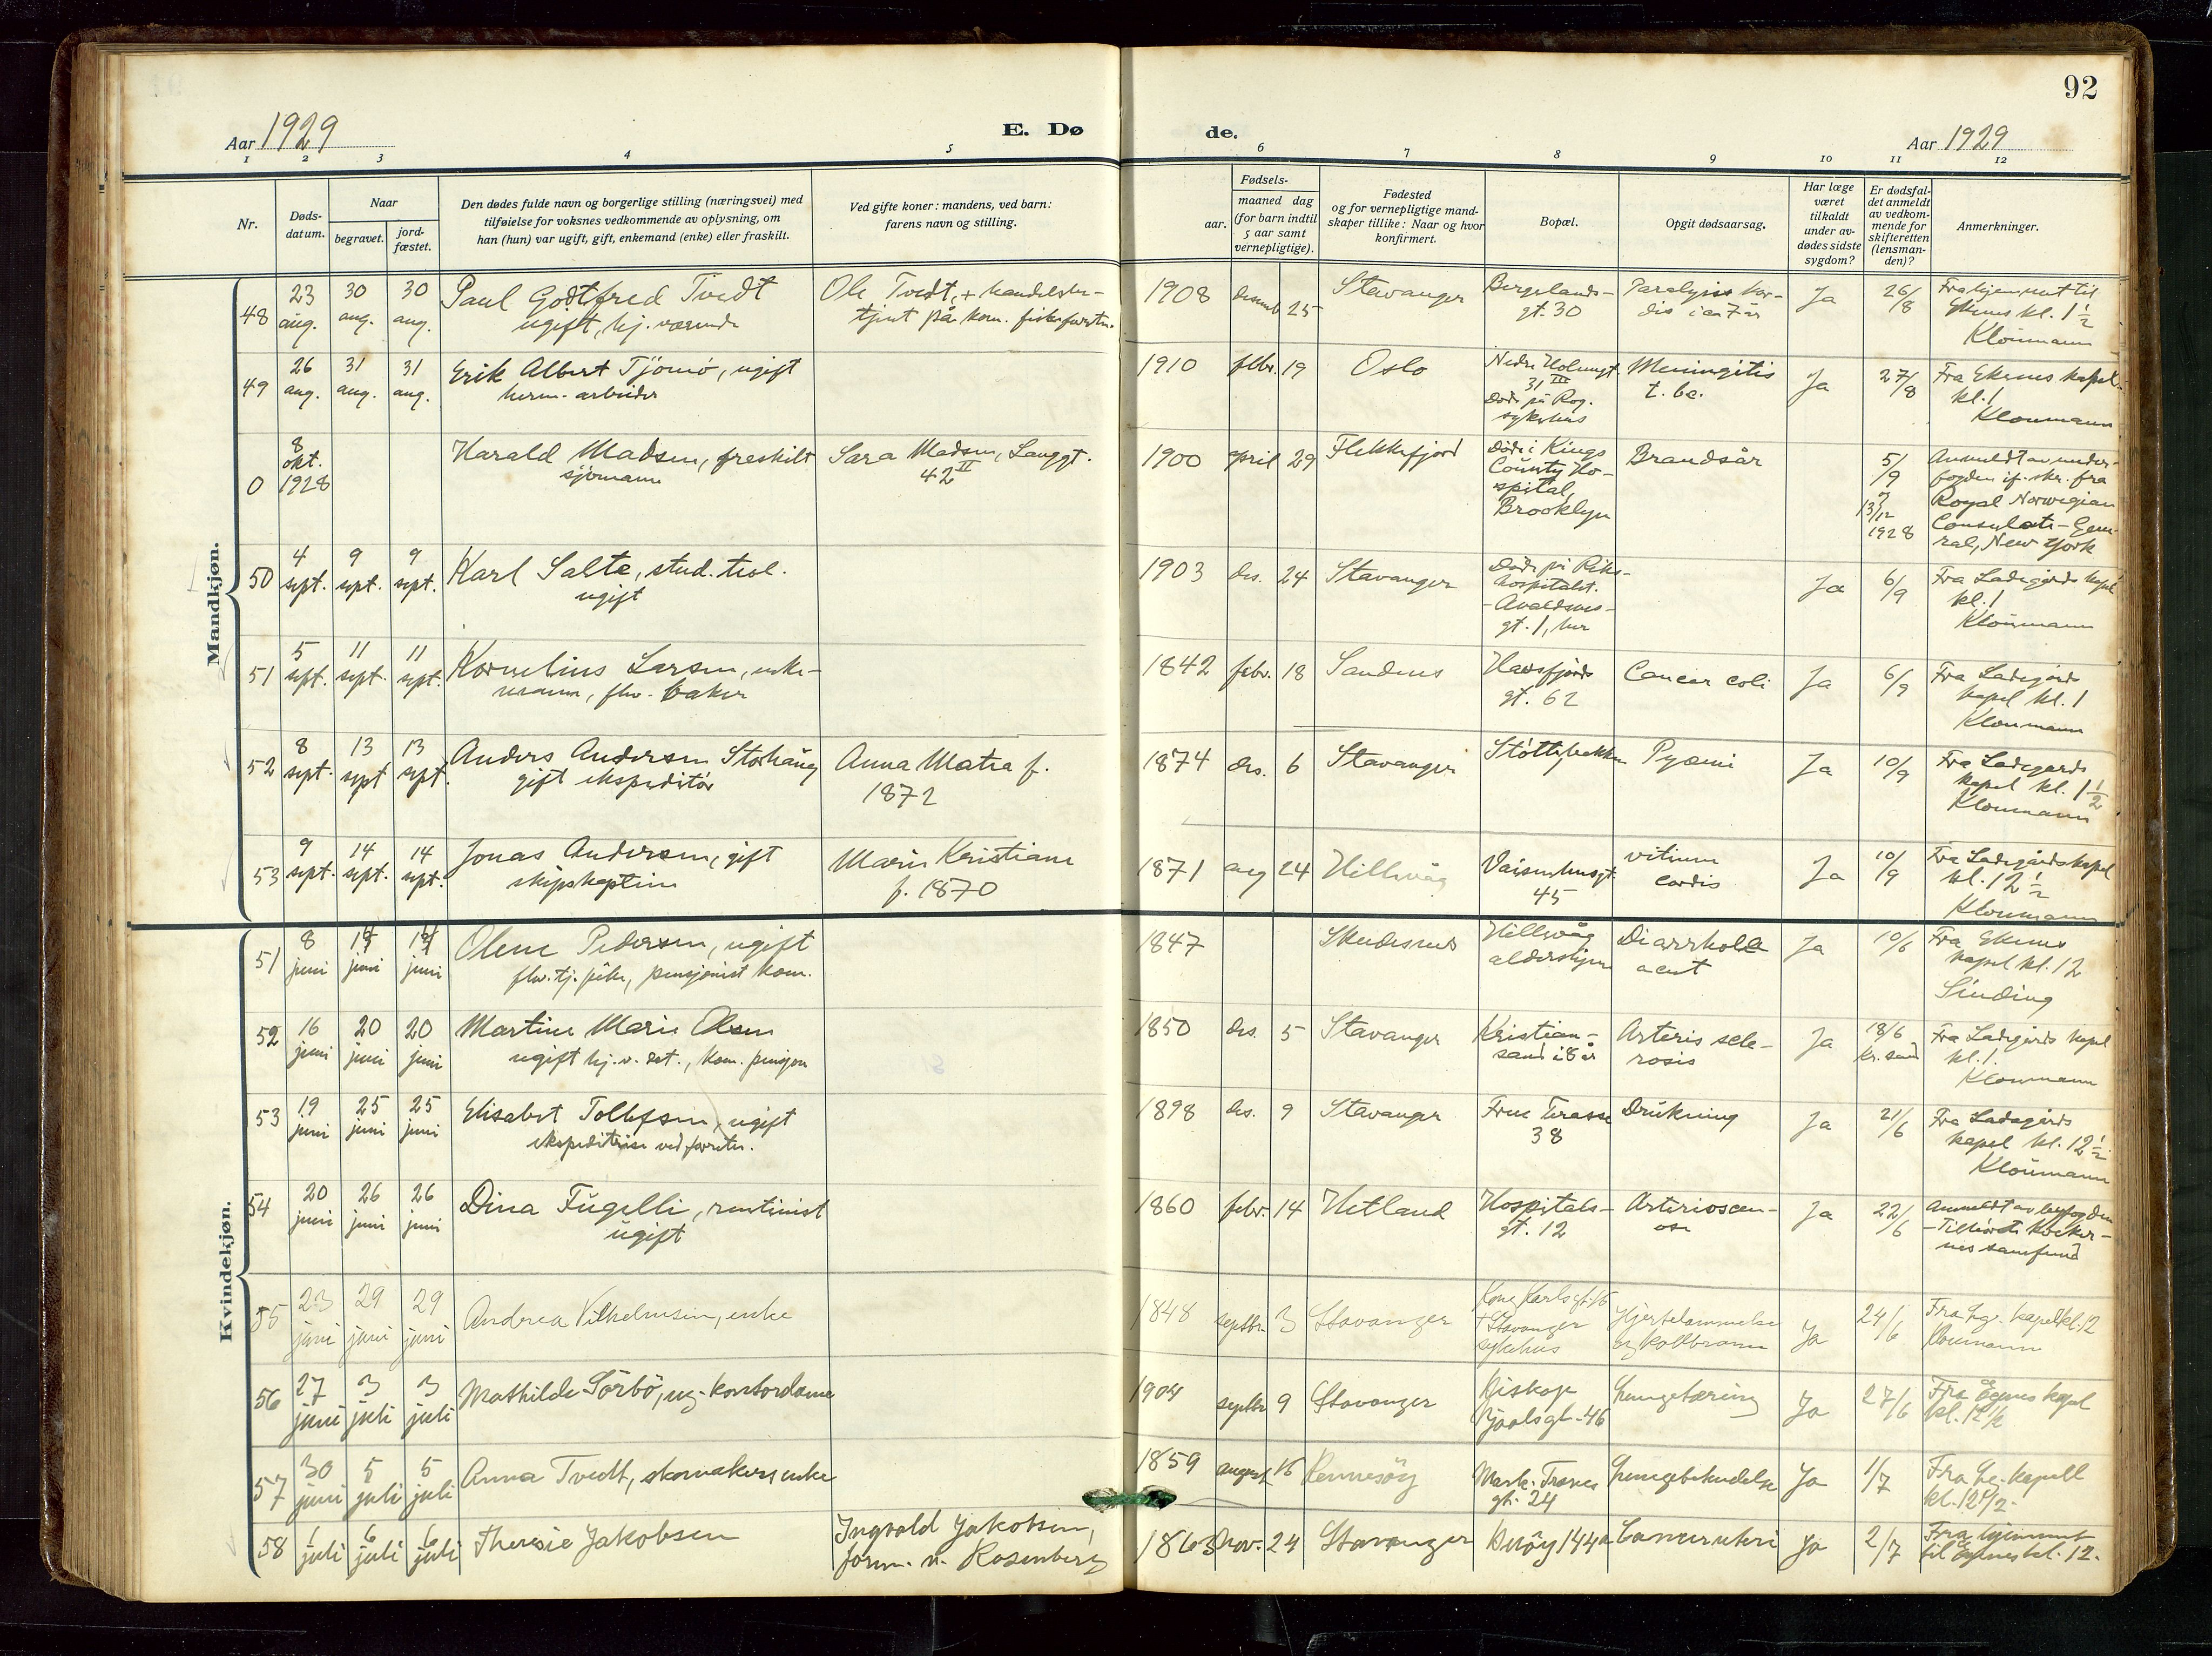 92
Aar 1929
E. Dø
de.
Aar 1929
1 2 3 4 5 6 7 8 9 10 11 12
Nr.
Døds-
datum.
Naar
begravet.
jord-
fæstet.
Den dødes fulde navn og borgerlige stilling (næringsvei) med
tilføielse for voksnes vedkommende av oplysning, om
han (hun) var ugift, gift, enkemand (enke) eller fraskilt.
Ved gifte koner: mandens, ved barn:
farens navn og stilling.
Fødsels-
aar.
maaned dag
(for barn indtil
5 aar samt
vernepligtige).
Fødested
og for vernepligtige mand-
skaper tillike: Naar og hvor
konfirmert.
Bopæl.
Opgit dødsaarsag.
Har læge
været
tilkaldt
under av-
dødes sidste
sygdom?
Er dødsfal-
det anmeldt
av vedkom-
mende for
skifteretten
(lensman-
den)?
Anmerkninger.
Mandkjøn.
48
23 aug.
30 aug.
30 aug.
Paul Godtfred Tvedt
ugift, hj. værende
Ole Tvedt, +
1908
25
Stavanger
Bergelands-
gt. 30
Ja
26/8
kl. 1 1/2
Kloumann
49
26 aug.
31 aug.
31 aug.
Erik Albert Tjömö, ugift
herm. arbeider
1910
febr. 19
Oslo
31 III
Døde på Rog.
sykehus
Meningitis
t. bc.
Ja
27/8
Fra Ekenes kapel
kl. 1
Kloumann
0
8
okt.
1928
Harald Madsen, freskilt
sjömann
Sara Madsen, Langgt.
42 II
1900
april 29
Flekkefjord
Døde i Kings
County Ho-
spital,
Brooklyn
Brandsår
5/9
13/12
1928
Anmeldt av under-
fogden if. skr. fra
Royal Norwegian
Consulate-Gene-
ral, New York
50
4 sept.
9 sept.
9 sept.
Karl Salte, stud. teol.
ugift
1903
des. 24
Stavanger
Døde på Riks-
hospitalet.
-Avaldsnes-
gt. 1, her
Ja
6/9
Fra Ladegårds kapel
kl. 1
Kloumann
51
5 sept.
11 sept.
11 sept.
Kornelius Larsen, enke-
mann, fhv. baker
1842
febr. 18
Sandnes
Havsfjords
gt. 62
Cancer coli
Ja
6/9
Fra Ladegårds
kapel kl. 1
Kloumann
52
8 sept.
13 sept
13 sept.
Anders Andersen Storhaug
gift ekspeditör
Anna Matea f.
1872
1874
des. 6
Stavanger
Pyæmi
Ja
10/9
Fra Ladegårds
kapel kl. 1 1/2
Kloumann
53
9 sept.
14 sept.
14 sept.
Jonas Andersen, gift
skipskaptein
Marie Kristiane
f. 1870
1871
aug 24
Hillevåg
Vaisenhusgt.
45
vitium
cordis
Ja
10/9
Fra Ladegårds kapel
kl. 12 1/2
Kloumann
Kvindekjøn.
51
8 juni
juni
juni
Olene Pedersen, ugift
fhv. tj. pike, pensjonist kom.
1847
Skudesnes
Hillevåg
aldershjem
acut
Ja
10/6
Fra Ekenes
kapel kl. 12
Sinding
52
16 juni
20 juni
20 juni
Martine Marie Olsen
ugift hj. v. det., kom. pensjon
1850
des. 5
Stavanger
Kristian-
sand i 8 år
Arteris scle-
rosis
Ja
18/6
kr. sand
Fra Ladegårds kapel
kl. 1.
Kloumann
53
19 juni
25 juni
25 juni
Elisabet Tollefsen, ugift
ekspeditrise ved forretn.
1898
des. 9
Stavanger
Frue Terasse
38
Drukning
Ja
21/6
Fra Ladegårds
kapel kl. 12 1/2
Kloumann
54
20 juni
26 juni
26 juni
Dina Fugelli, rentenist
ugift
1860
febr. 14
Hetland
Hospitals-
gt. 12
Ja
22/6
Anmeldt av byfogden
-Tilhörte Kveker-
nes samfund
55
23 juni
29 juni
29 juni
Andrea Vilhelmsen, enke
1848
septbr. 3
Stavanger
Kong Karls gt. 16
+ Stavanger
sykehus
Hjertelammelse
og koldbrann
Ja
24/6
Fra Lg. kapel kl. 12
Kloumann
56
27 juni
3 juli
3 juli
Mathilde Sörbö, ug. kontordame
1904
septbr 9
Stavanger
Biskop
Njaalsgt. 46
Lungetæring
Ja
27/6
Fra Egenes kapel
kl. 12 1/2
57
30 juni
5 juli
5 juli
Anna Tvedt, skomakers enke
1859
august 16
Rennesöy
gt. 24
Lungebetændelse
Ja
1/7
Fra Lg. kapell
kl. 12 1/2
58
1 juli
6 juli
6 juli
Theresie Jakobsen
Ingvald Jakobsen,
form. v. Rosenberg
1863
nov. 24
Stavanger
Buöy 144a
Cancer uteri
Ja
2/7
Fra hjemmet
til Egenes kl. 12.